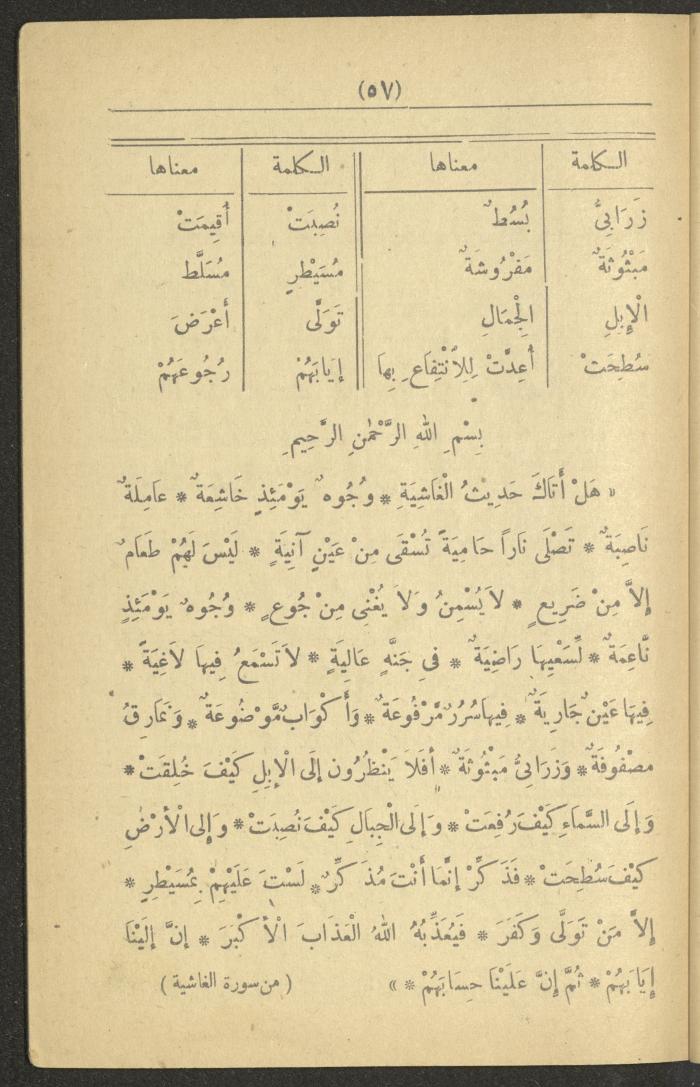 (٥٧)
الكلمة معناها الكلمة معناها
زَرَابِيُّ بُسُطٌ نُصِبَتْ أُقِيمَتْ
مَبْثُوثَةٌ مَفْرُوشَةٌ مُسَيْطِرٍ مُسَلَّط
الْإِبِلِ الْجِمَالِ تَوَلَّى أَعْرَضَ
سُطِحَتْ أُعِدَّتْ لِلِانْتِفَاعِ بِهَا إِيَابَهُمْ رُجُوعَهُمْ
بِسْمِ اللهِ الرَّحْمٰنِ الرَّحِيمِ
« هَلْ أَتَاكَ حَدِيثُ الْغَاشِيَةِ * وُجُوهٌ يَوْمَئِذٍ خَاشِعَةٌ * عَامِلَةٌ
نَاصِبَةٌ * تَصْلَى نَاراً حَامِيَةً تُسْقَى مِنْ عَيْنٍ آنِيَةٍ * لَيْسَ لَهُمْ طَعَامٌ
إِلاَّ مِنْ ضَرِيعٍ * لاَ يُسْمِنُ وَلاَ يُغْنِى مِنْ جُوعٍ * وُجُوهٌ يَوْمَئِذٍ
نَّاعِمَةٌ * لِّسَعْيِهَا رَاضِيَةٌ * فِى جَنَّةٍ عَالِيَةٍ * لاَ تَسْمَعُ فِيهَا لاَغِيَةً *
فِيهَا عَيْنٌ جَارِيَةٌ * فِيهَا سُرُرٌ مَّرْفُوعَةٌ * وَأَكْوَابٌ مَّوْضُوعَةٌ * وَنَمَارِقُ
مَصْفُوفَةٌ * وَزَرَابِىُّ مَبْثُوثَةٌ * أَفَلاَ يَنْظُرُون إِلَى الْإِبِلِ كَيْفَ خُلِقَتْ *
وَإِلَى السَّمَاءِ كَيْفَ رُفِعَتْ * وَإِلَى الْجِبَالِ كَيْفَ نُصِبَتْ * وَإِلى الْأَرْضِ
كَيْفَ سُطِحَتْ * فَذَكِّرْ إِنَّمَا أَنْتَ مُذَكِّرٌ * لَسْتَ عَلَيْهِمْ بِمُسَيْطِرٍ *
إِلاَّ مَنْ تَوَلَّى وَكَفَرَ * فَيُعَذِّبُهُ اللهُ الْعَذَابَ الْأَكْبَرَ * إِنَّ إِلَيْنَا
إِيَابَهُمْ * ثُمَّ إِنَّ عَلَيْنَا حِسَابَهُمْ * » ( من سورة الغاشية )